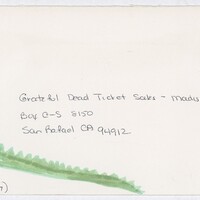 Grateful Dead Ticket Sales - Madis
Box C-S 8150
San Rafael CA 94912